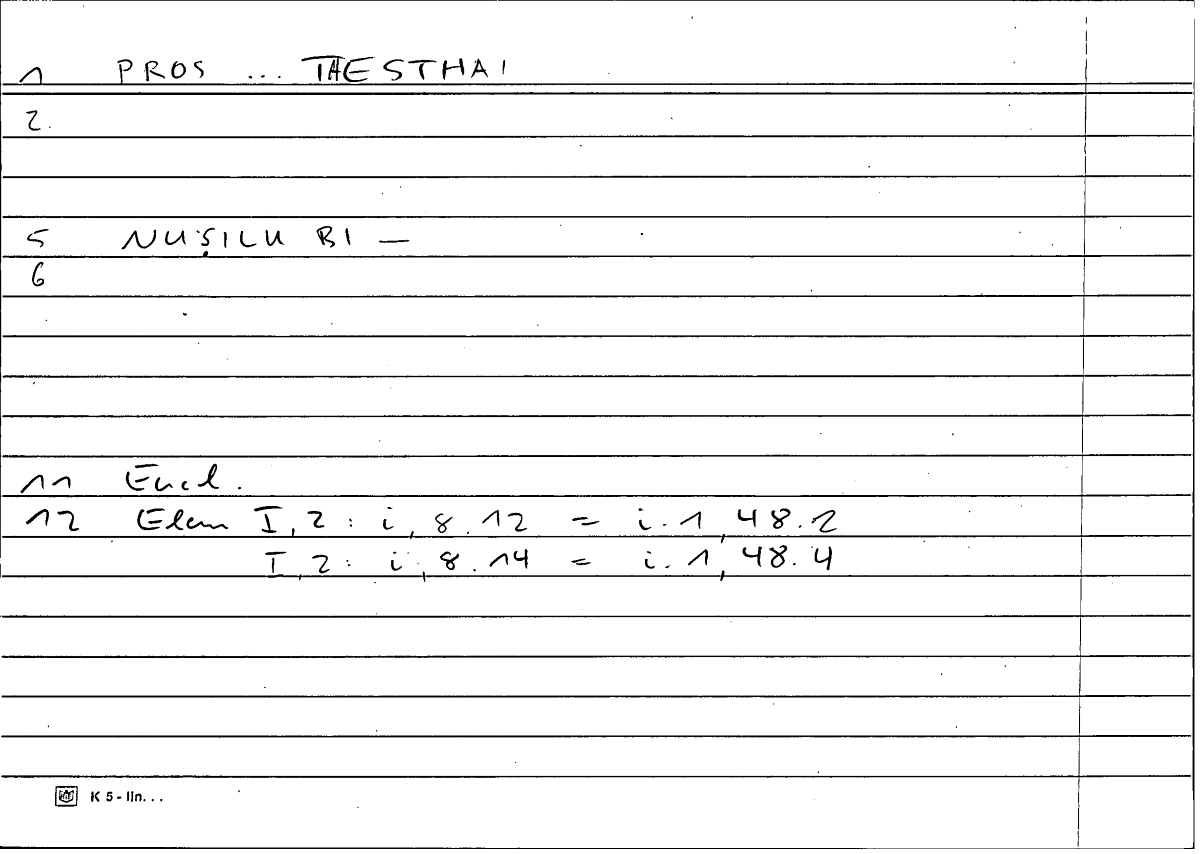 1 PROS ... THESTHAI
2.
5 NUṢILU BI —
6
11 Eucl.
12 Elem I, 2 : i, 8.12 = i.1, 48.2
I, 2 : i, 8.14 = i.1, 48.4
K 5 - lin. . .